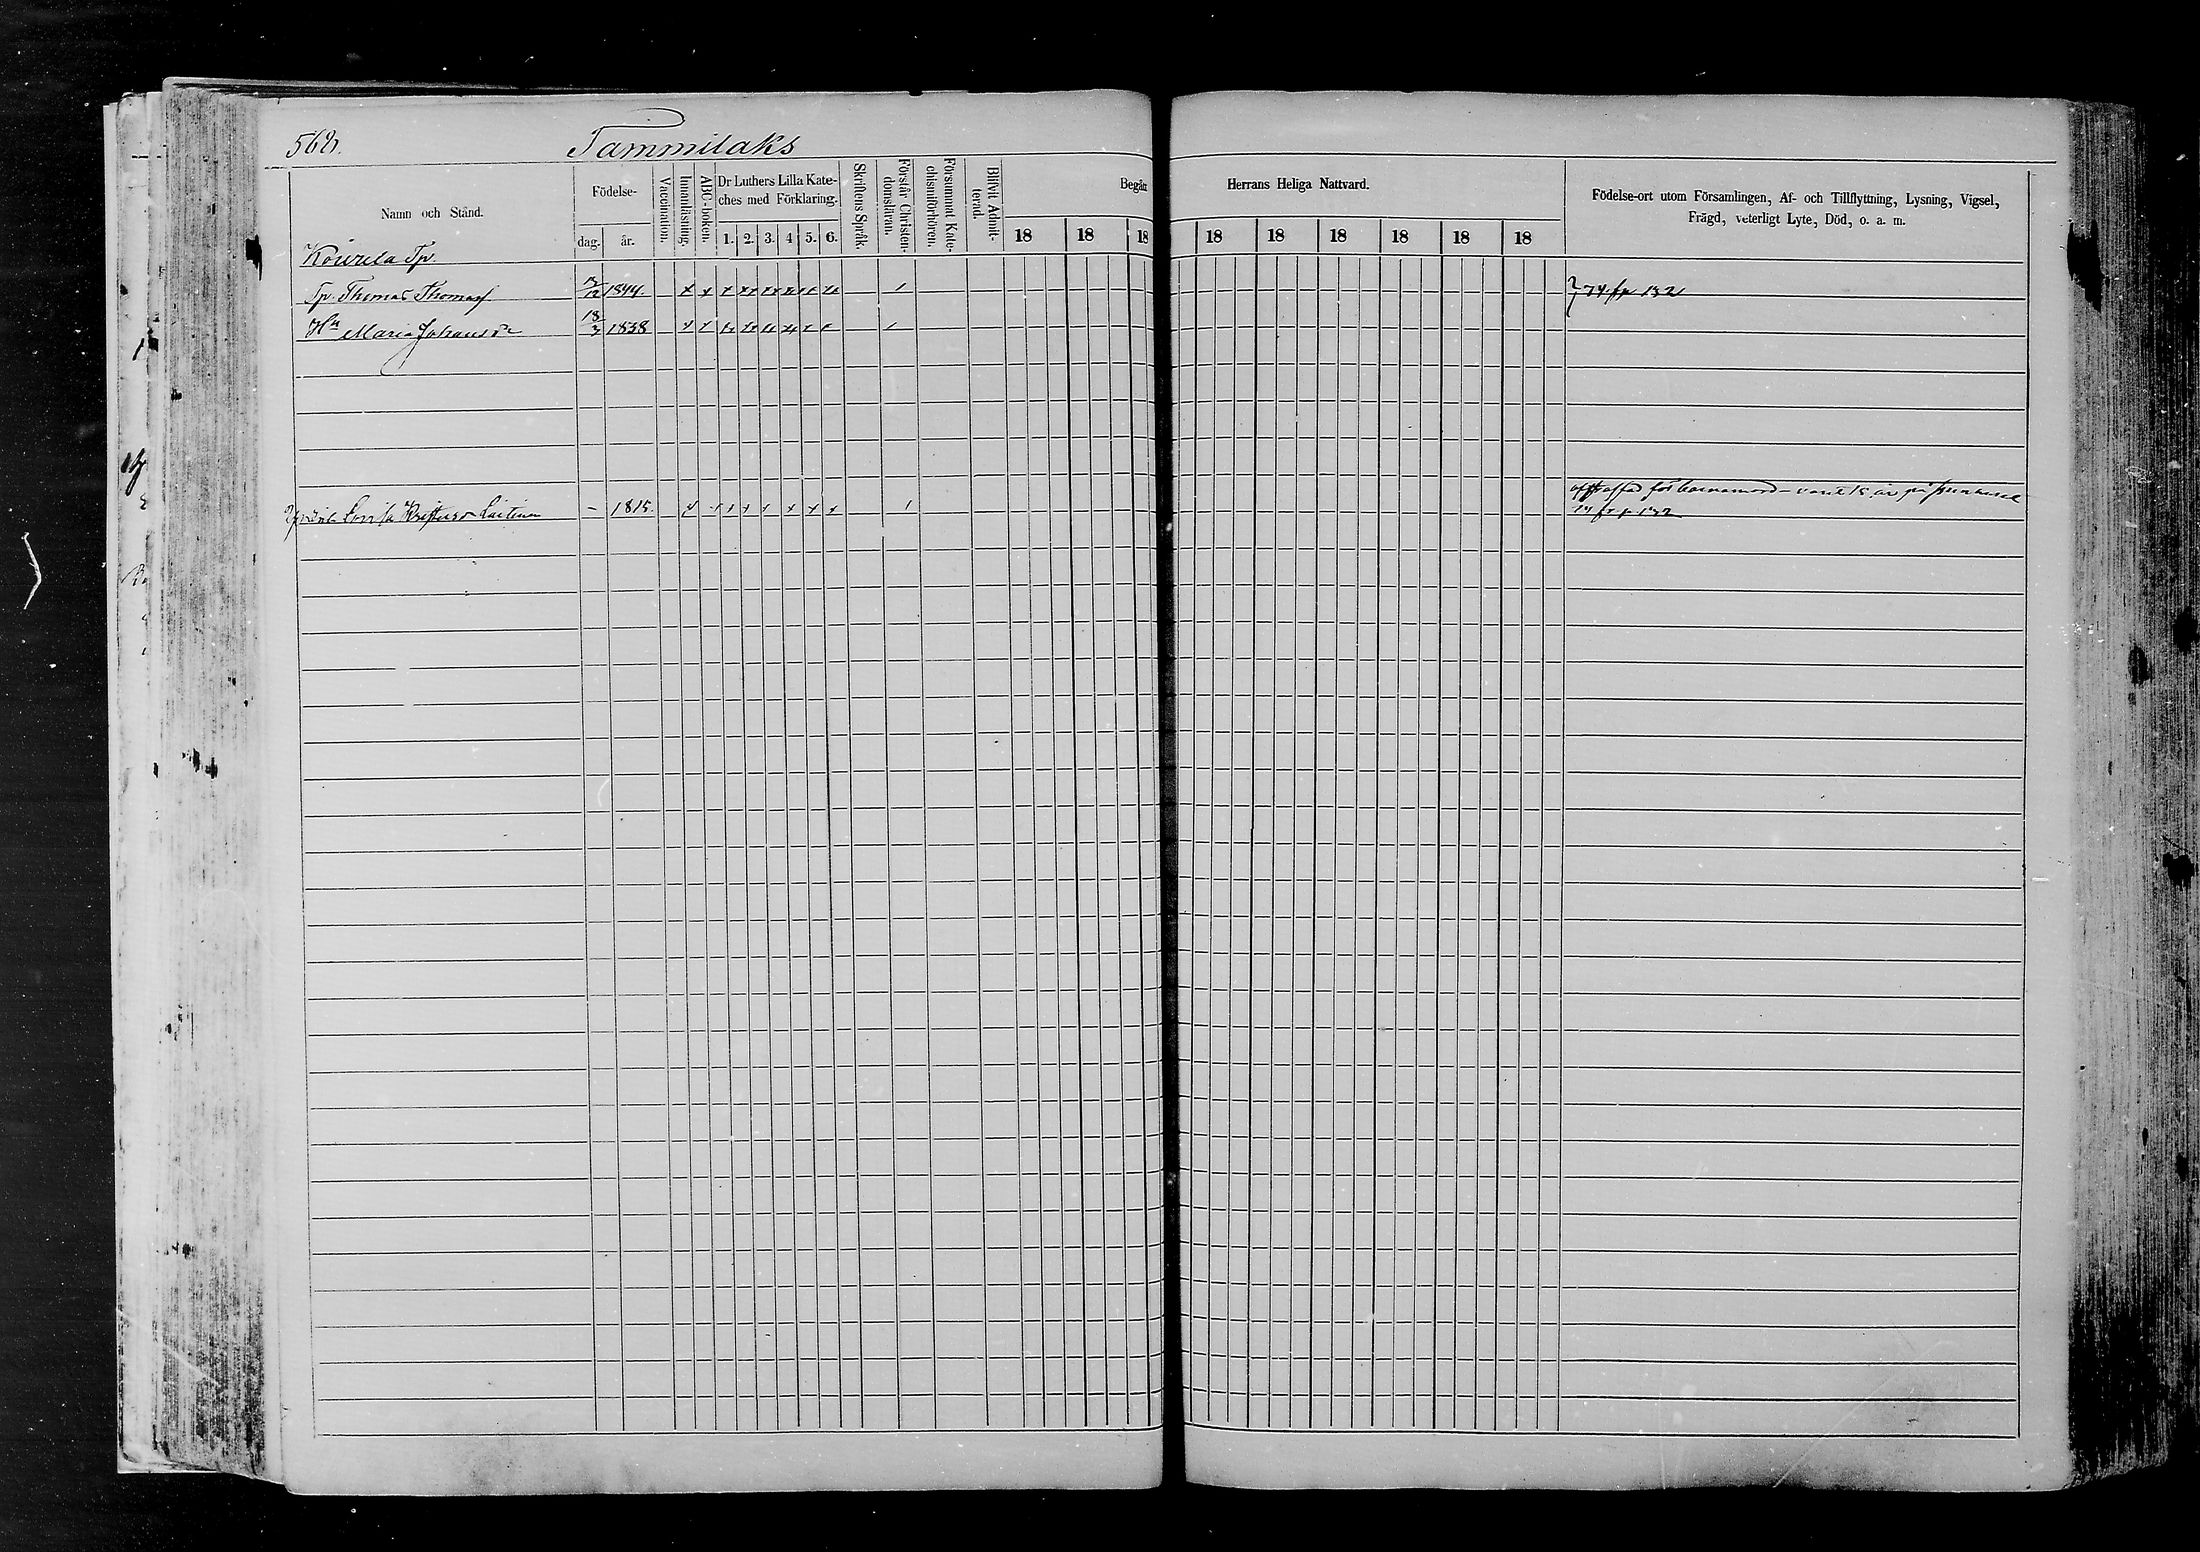 562.
Tammilaks
Namn och Stånd.
Födelse-
dag.
år.
Vaccination.
Innanläsning.
ABC-boken.
Dr Luthers Lilla Kate-
ches med Förklaring.
1. 2. 3. 4. 5. 6.
Skriftens Språk.
Förstår Christen-
domsläran.
Försummat Kate-
chismiförhören.
Blifvit Admit-
terad.
Begått
Herrans Heliga Nattvard.
18 18 18 18 18 18 18 18 18
Födelse-ort utom Församlingen, Af- och Tillflyttning, Lysning, Vigsel,
Frägd, veterligt Lyte, Död, o. a. m.
Tp.
Tp. Thomas Thomass 1844. 74 fr 132
Hu Maria Johansdr 18/3 1838
Lovisa Laitinen – 1815. för barnamord – varit 15 år på
74 fr p 132